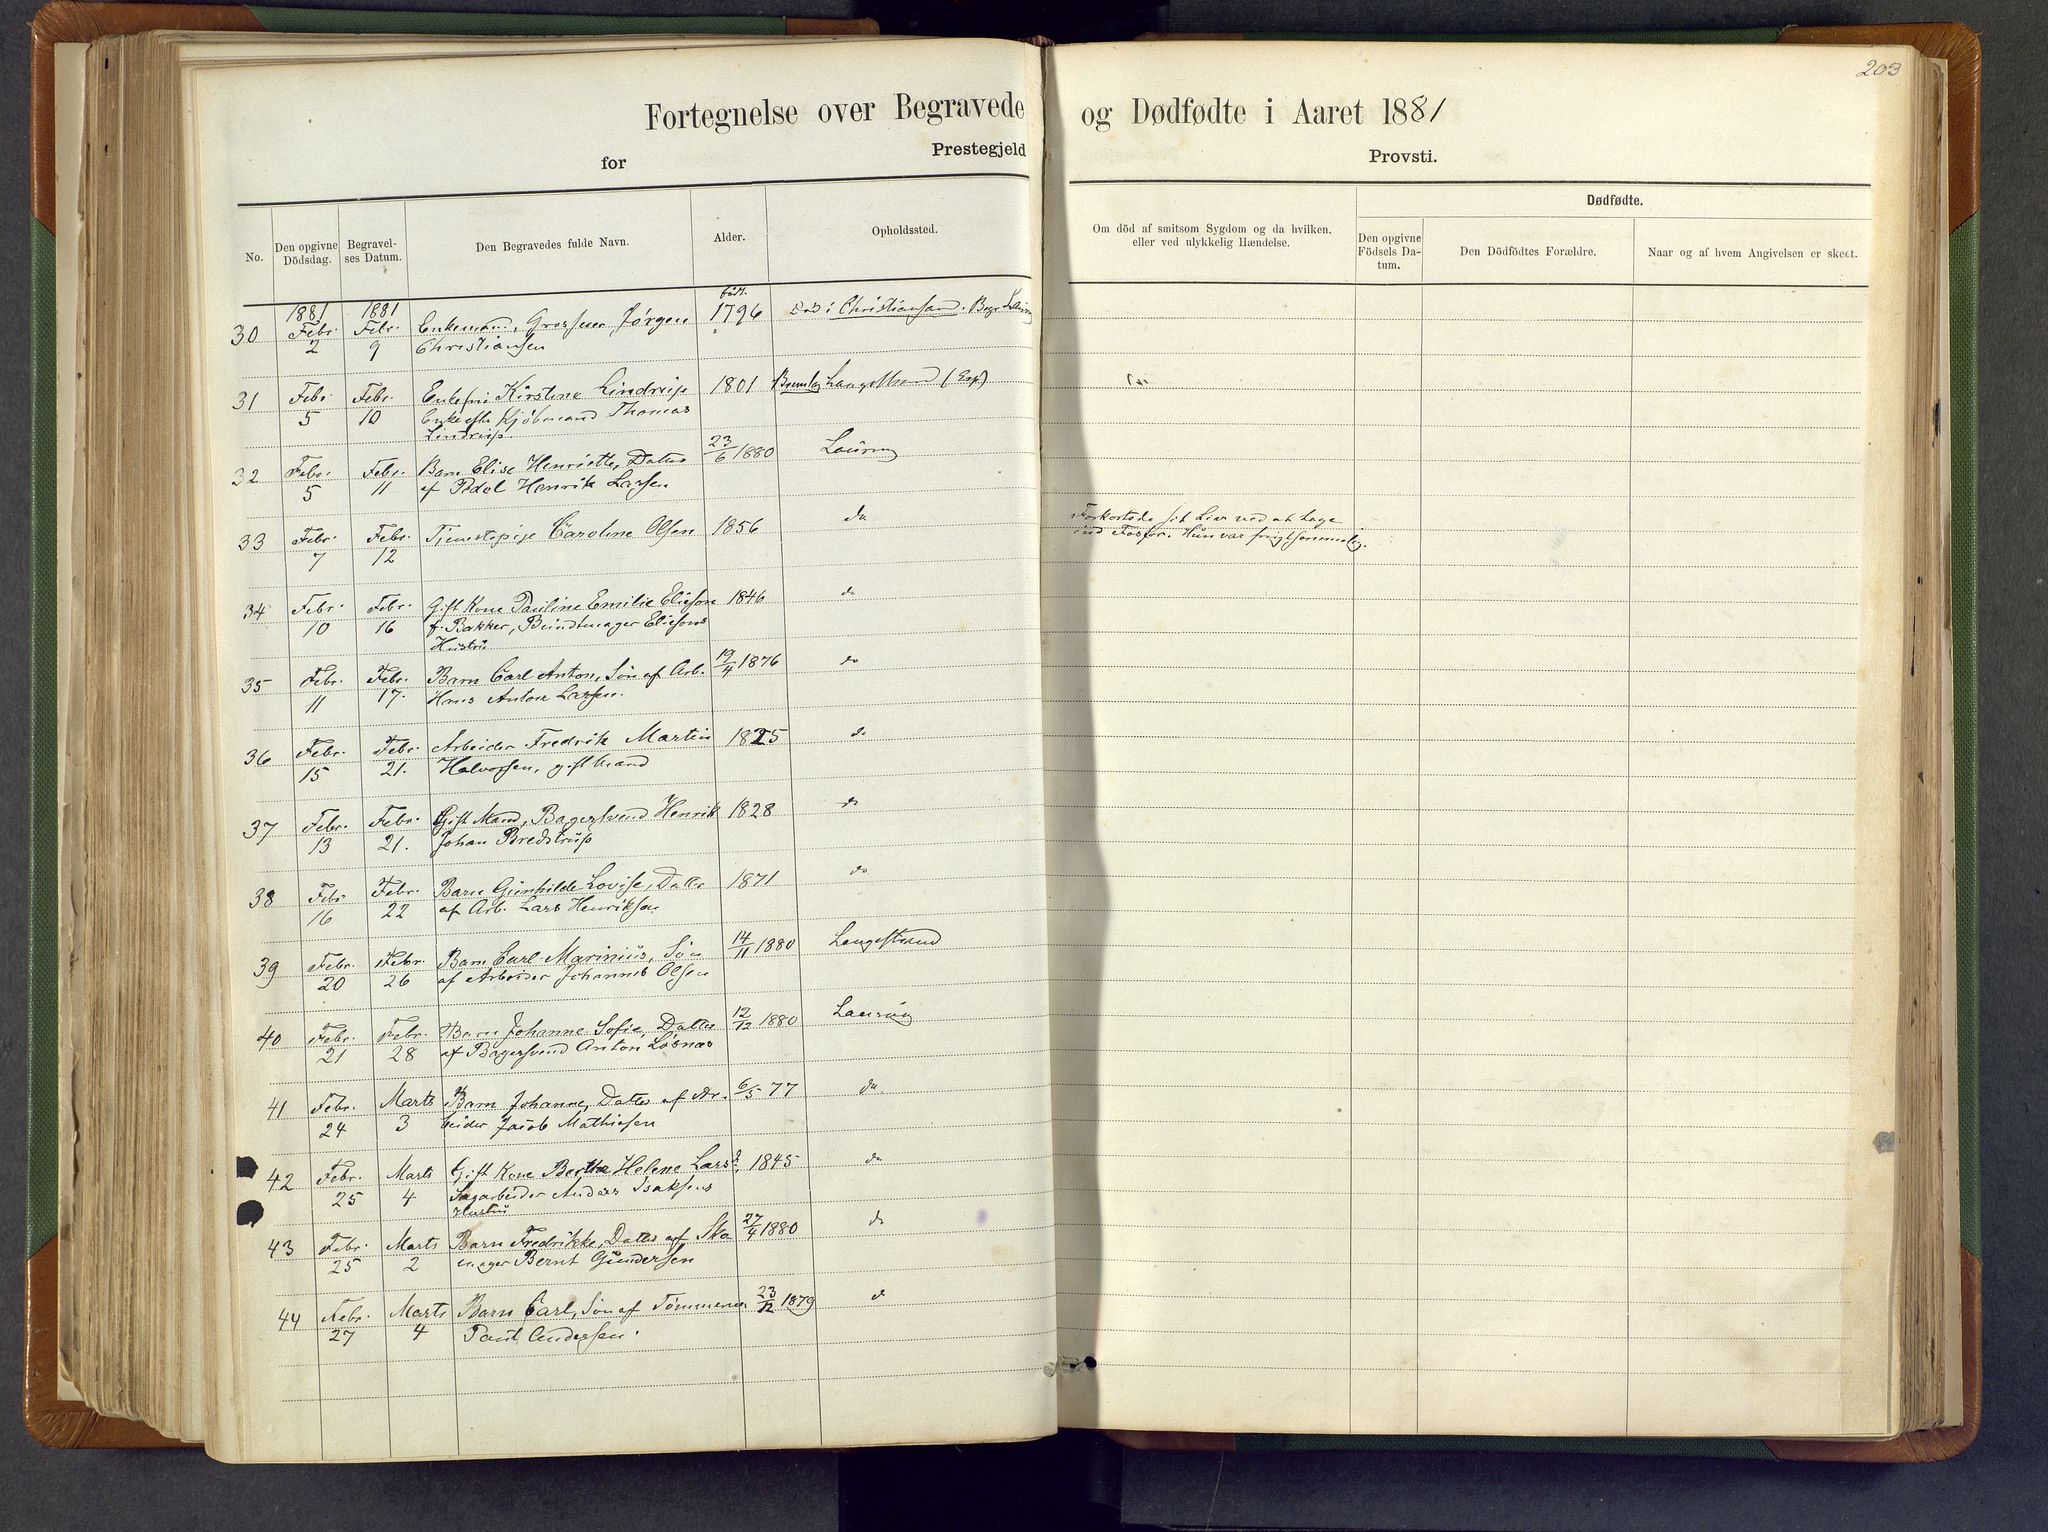 203
Fortegnelse over Begravede og Dødfødte i Aaret 1881
for Prestegjeld Provsti.
No. Den opgivne Dödsdag. Begravelses Datum. Den Begravedes fulde Navn. Alder. Opholdssted. Om död af smitsom Sygdom og da hvilken, eller ved ulykkelig Hændelse. Dødfødte.
Den opgivne Födsels Datum. Den Dödfödtes Forældre. Naar og af hvem Angivelsen er skeet.
1881 1881 födt.
30 Febr. Febr. Enkemand, Jørgen 1796 Död i Christiansand. Begr.
2 9 Christiansen
31 Febr. Febr. Enkefru Kirstine Lindrup 1801 Langestrand
5 10 Enke efter Kjöbmand Thomas
Lindrup.
32 Febr. Febr. Barn Elise Henriette, Datter 23/6 1880 Laurvig
5 11 af Pedel Henrik Larsen
33 Febr. Febr. Tjenestepige Caroline Olsen 1856 do Forkortede sit Liv ved at tage
7 12 ind Fosfor. Hun var frugtsommelig.
34 Febr. Febr. Gift Kone Pauline Emilie Elieson 1846 do
10 16 f. Bakker, Bundtmager Eliesons
Hustru
35 Febr. Febr. Barn Carl Anton, Sön af Arb. 19/4 1876 do
11 17. Hans Anton Larsen.
36 Febr. Febr. Arbeider Fredrik Martin 1825 do
15 21. Halvorsen, gift Mand
37 Febr. Febr. Gift Mand, Bagersvend Henrik 1828 do
13 21. Johan Bredstrup
38 Febr. Febr. Barn Gunhilde Lovise, Datter 1871 do
16 22 af Arb. Lars Henriksen
39 Febr. Febr. Barn Carl Marinius, Sön 14/11 1880 Langestrand
20 26 af Arbeider Johannes Olsen
40 Febr. Febr. Barn Johanne Sofie, Datter 12/12 1880 Laurvig
21 28 af Bagersvend Anton Losnæs
41 Febr. Marts Barn Johanne, Datter af Ar- 6/5 77 do
24 3 beider Jacob Mathisen
42 Febr. Marts Gift Kone Berthe Helene Larsd. 1845 do
25 4 Sagarbeider Anders Isaksens
Hustru
43 Febr. Marts Barn Fredrikke, Datter af Sko 27/4 1880 do
25 2 mager Bernt Gundersen
44 Febr. Marts Barn Carl, Sön af Tömmerm 23/12 1879 do
27 4 Paul Andersen.